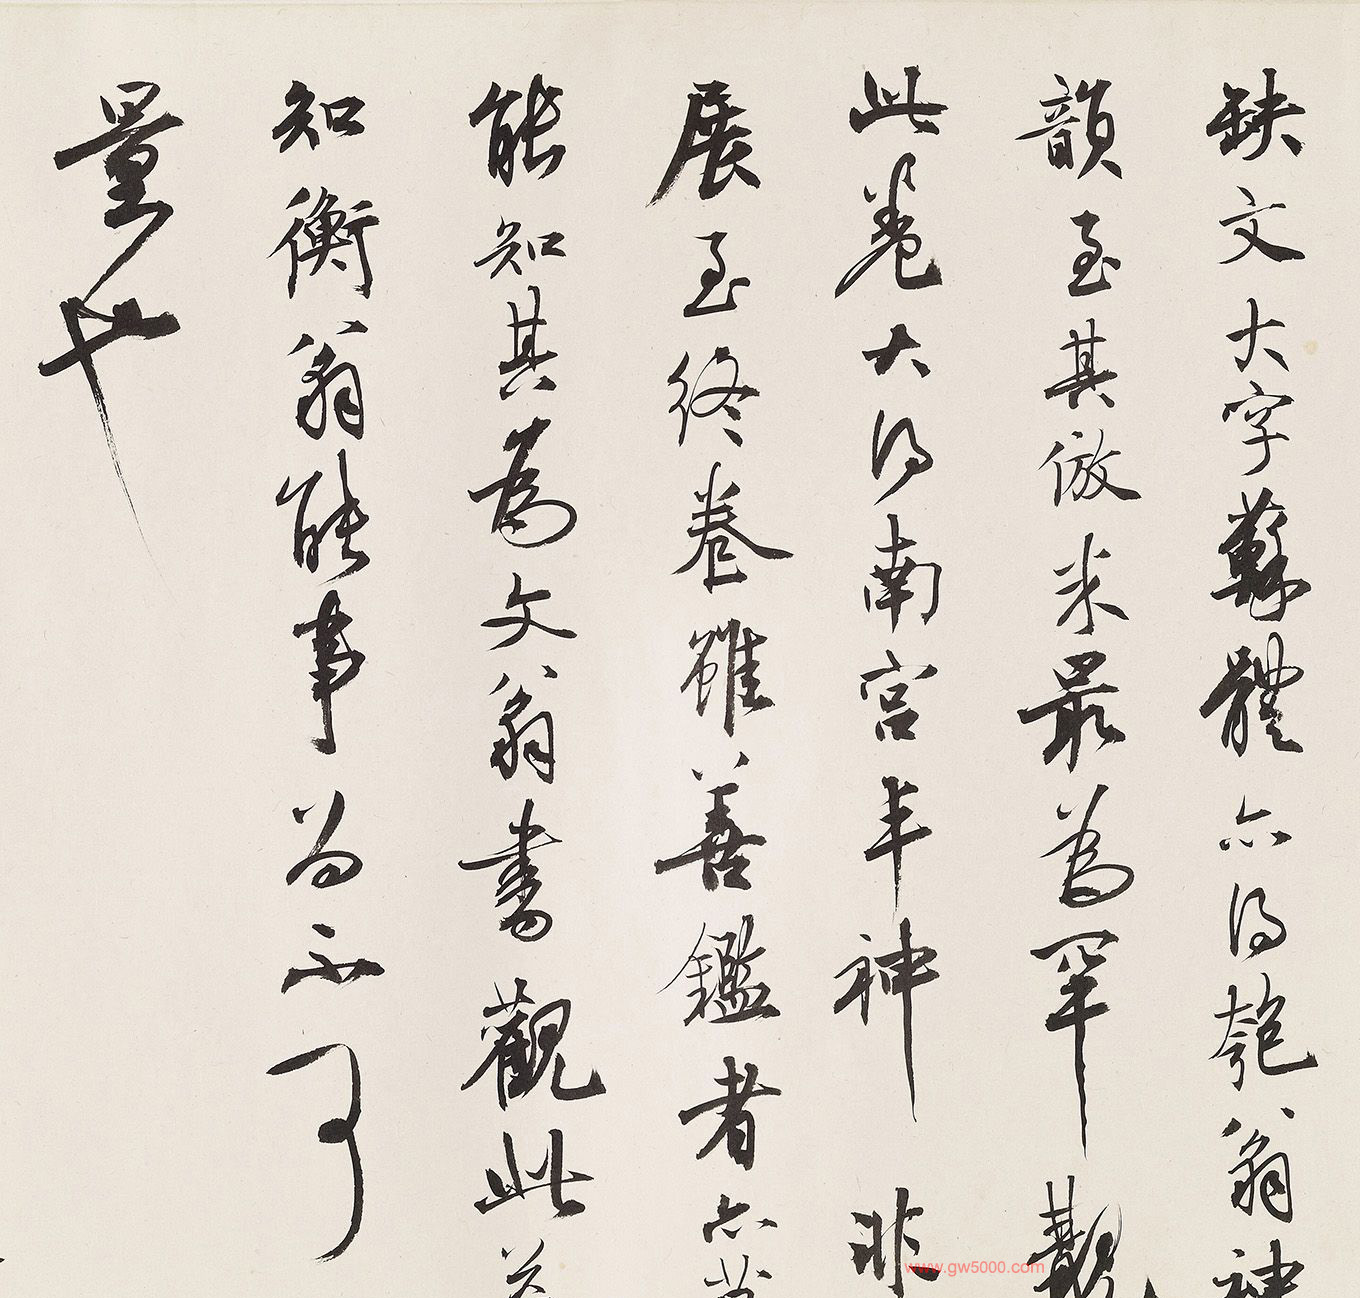 缺文大字蘇體亦得匏翁神
韻至其倣米最為罕觀
此卷大得南宫半神非
展至終卷雖善鑑者亦
能知其為文翁書觀此
知衡翁能事為不可
量也
www.gw5000.com